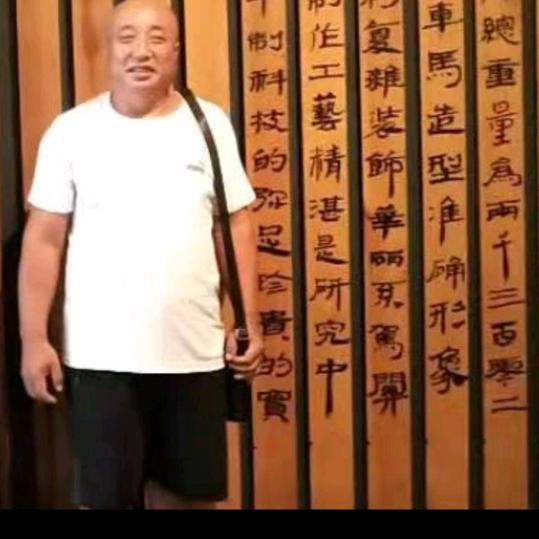 總重量為兩千三百零二
車馬造型准确形象
复雜裝飾華丽系駕關
制作工藝精湛是研究中
制科技的弥足珍貴的實